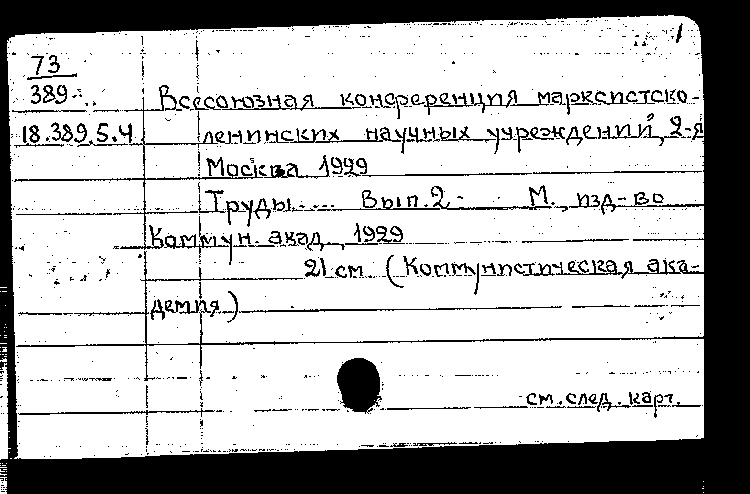 1
73
389
Всесоюзная конференция марксистско-
18.389.5.4 ленинских научных учреждений, 2-я
Москва 1929
Труды.... Вып.2 - М., изд-во
Коммун. акад., 1929
21 см. (Коммунистическая ака-
демия)
см. след. карт.